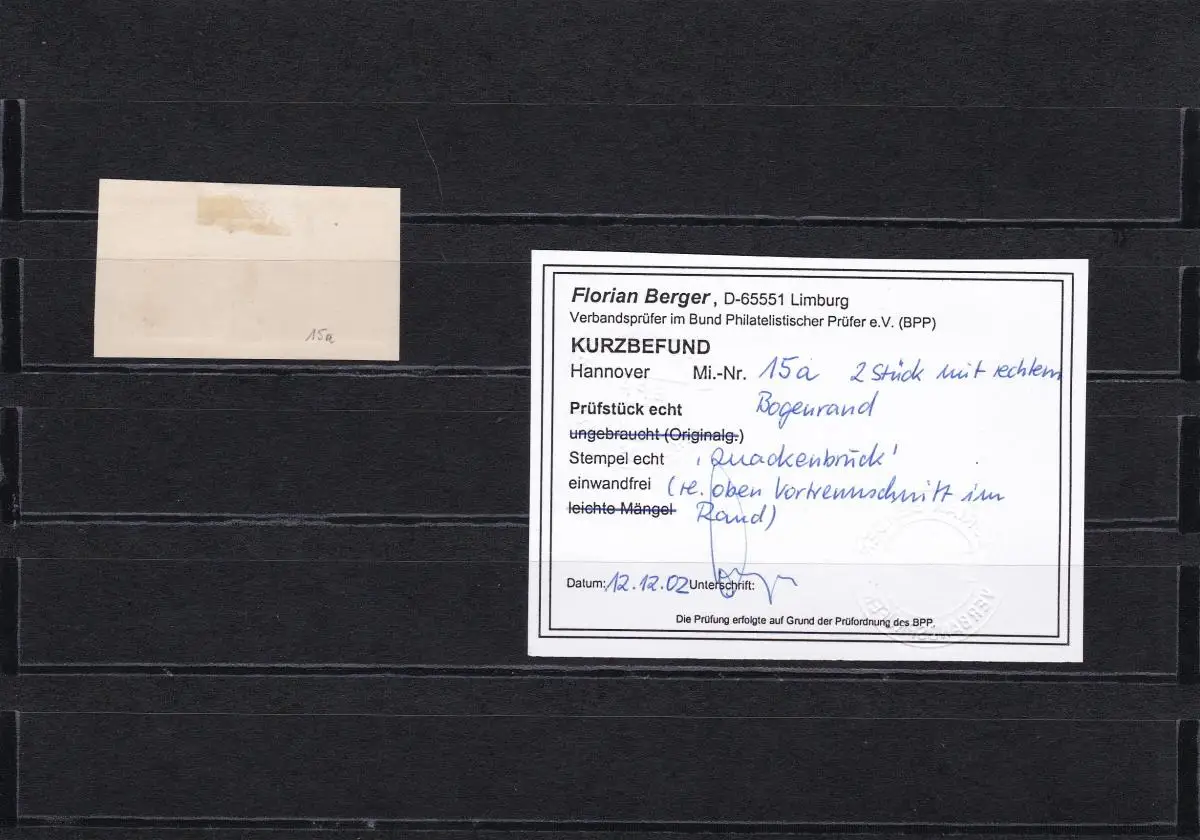 15a
Florian Berger, D-65551 Limburg
Verbandsprüfer im Bund Philatelistischer Prüfer e.V. (BPP)
KURZBEFUND
Hannover Mi.-Nr. 15a 2 Stück mit rechtem
Prüfstück echt Bogenrand
ungebraucht (Originalg.)
Stempel echt 'Quackenbrück'
einwandfrei (re. oben Vortrennschnitt im
leichte Mängel Rand)
Datum: 12.12.02 Unterschrift:
Die Prüfung erfolgte auf Grund der Prüfordnung des BPP.